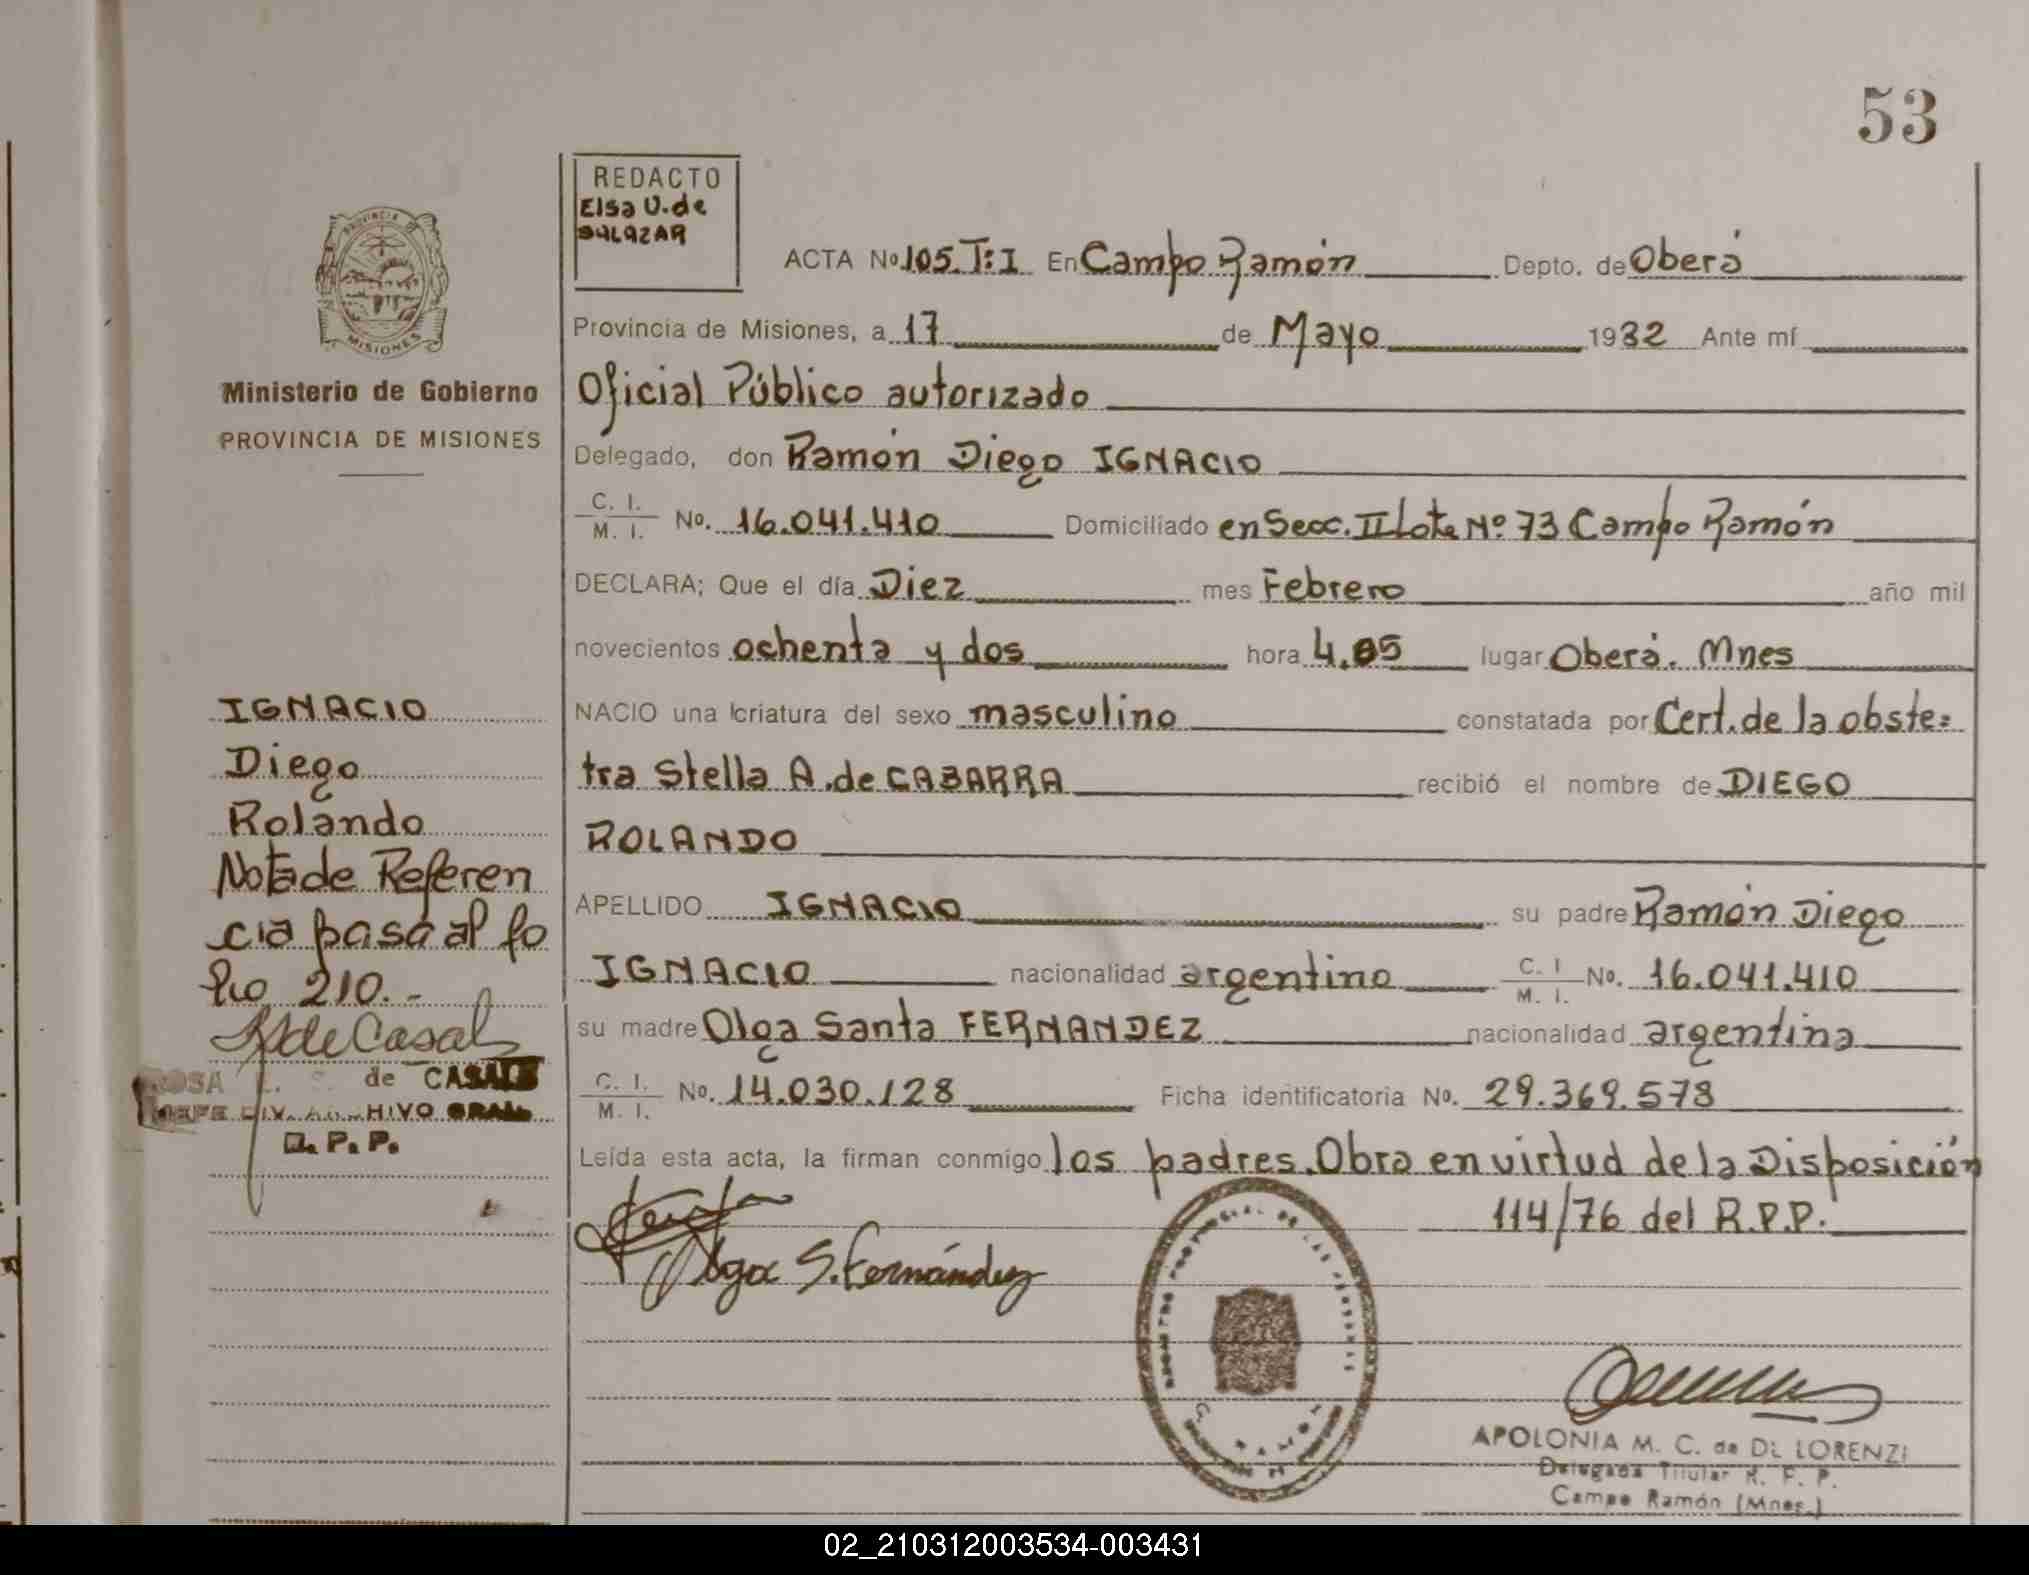 53
REDACTO
Elsa U. de
SALAZAR
ACTA No. 105. T:I En Campo Ramón Depto. de Oberá
Provincia de Misiones, a 17 de Mayo 1982 Ante mí
Oficial Público autorizado
Delegado, don Ramón Diego IGNACIO
C. I.
M. I. No. 16.041.410 Domiciliado en Secc. II Lote Nº 73 Campo Ramón
DECLARA; Que el día Diez mes Febrero año mil
novecientos ochenta y dos hora 4.05 lugar Oberá. Mnes
NACIO una criatura del sexo masculino constatada por Cert. de la obste=
tra Stella A. de CABARRA recibió el nombre de DIEGO
ROLANDO
APELLIDO IGNACIO su padre Ramón Diego
IGNACIO nacionalidad argentino C. I. M. I. No. 16.041.410
su madre Olga Santa FERNANDEZ nacionalidad argentina
C. I.
M. I. No. 14.030.128 Ficha identificatoria No. 29.369.578
Leída esta acta, la firman conmigo los padres. Obra en virtud de la Disposición
114/76 del R.P.P.
Olga S. Fernández
APOLONIA M. C. de DE LORENZI
Delegada Titular R. P. P.
Campo Ramón (Mnes.)
PROVINCIA
MISIONES
Ministerio de Gobierno
PROVINCIA DE MISIONES
IGNACIO
Diego
Rolando
Nota de Referen
cia pasa al fo
lio 210.-
de Casals
ROSA de CASALS
JEFE DIV. ARCHIVO GRAL.
R. P. P.
02_210312003534-003431